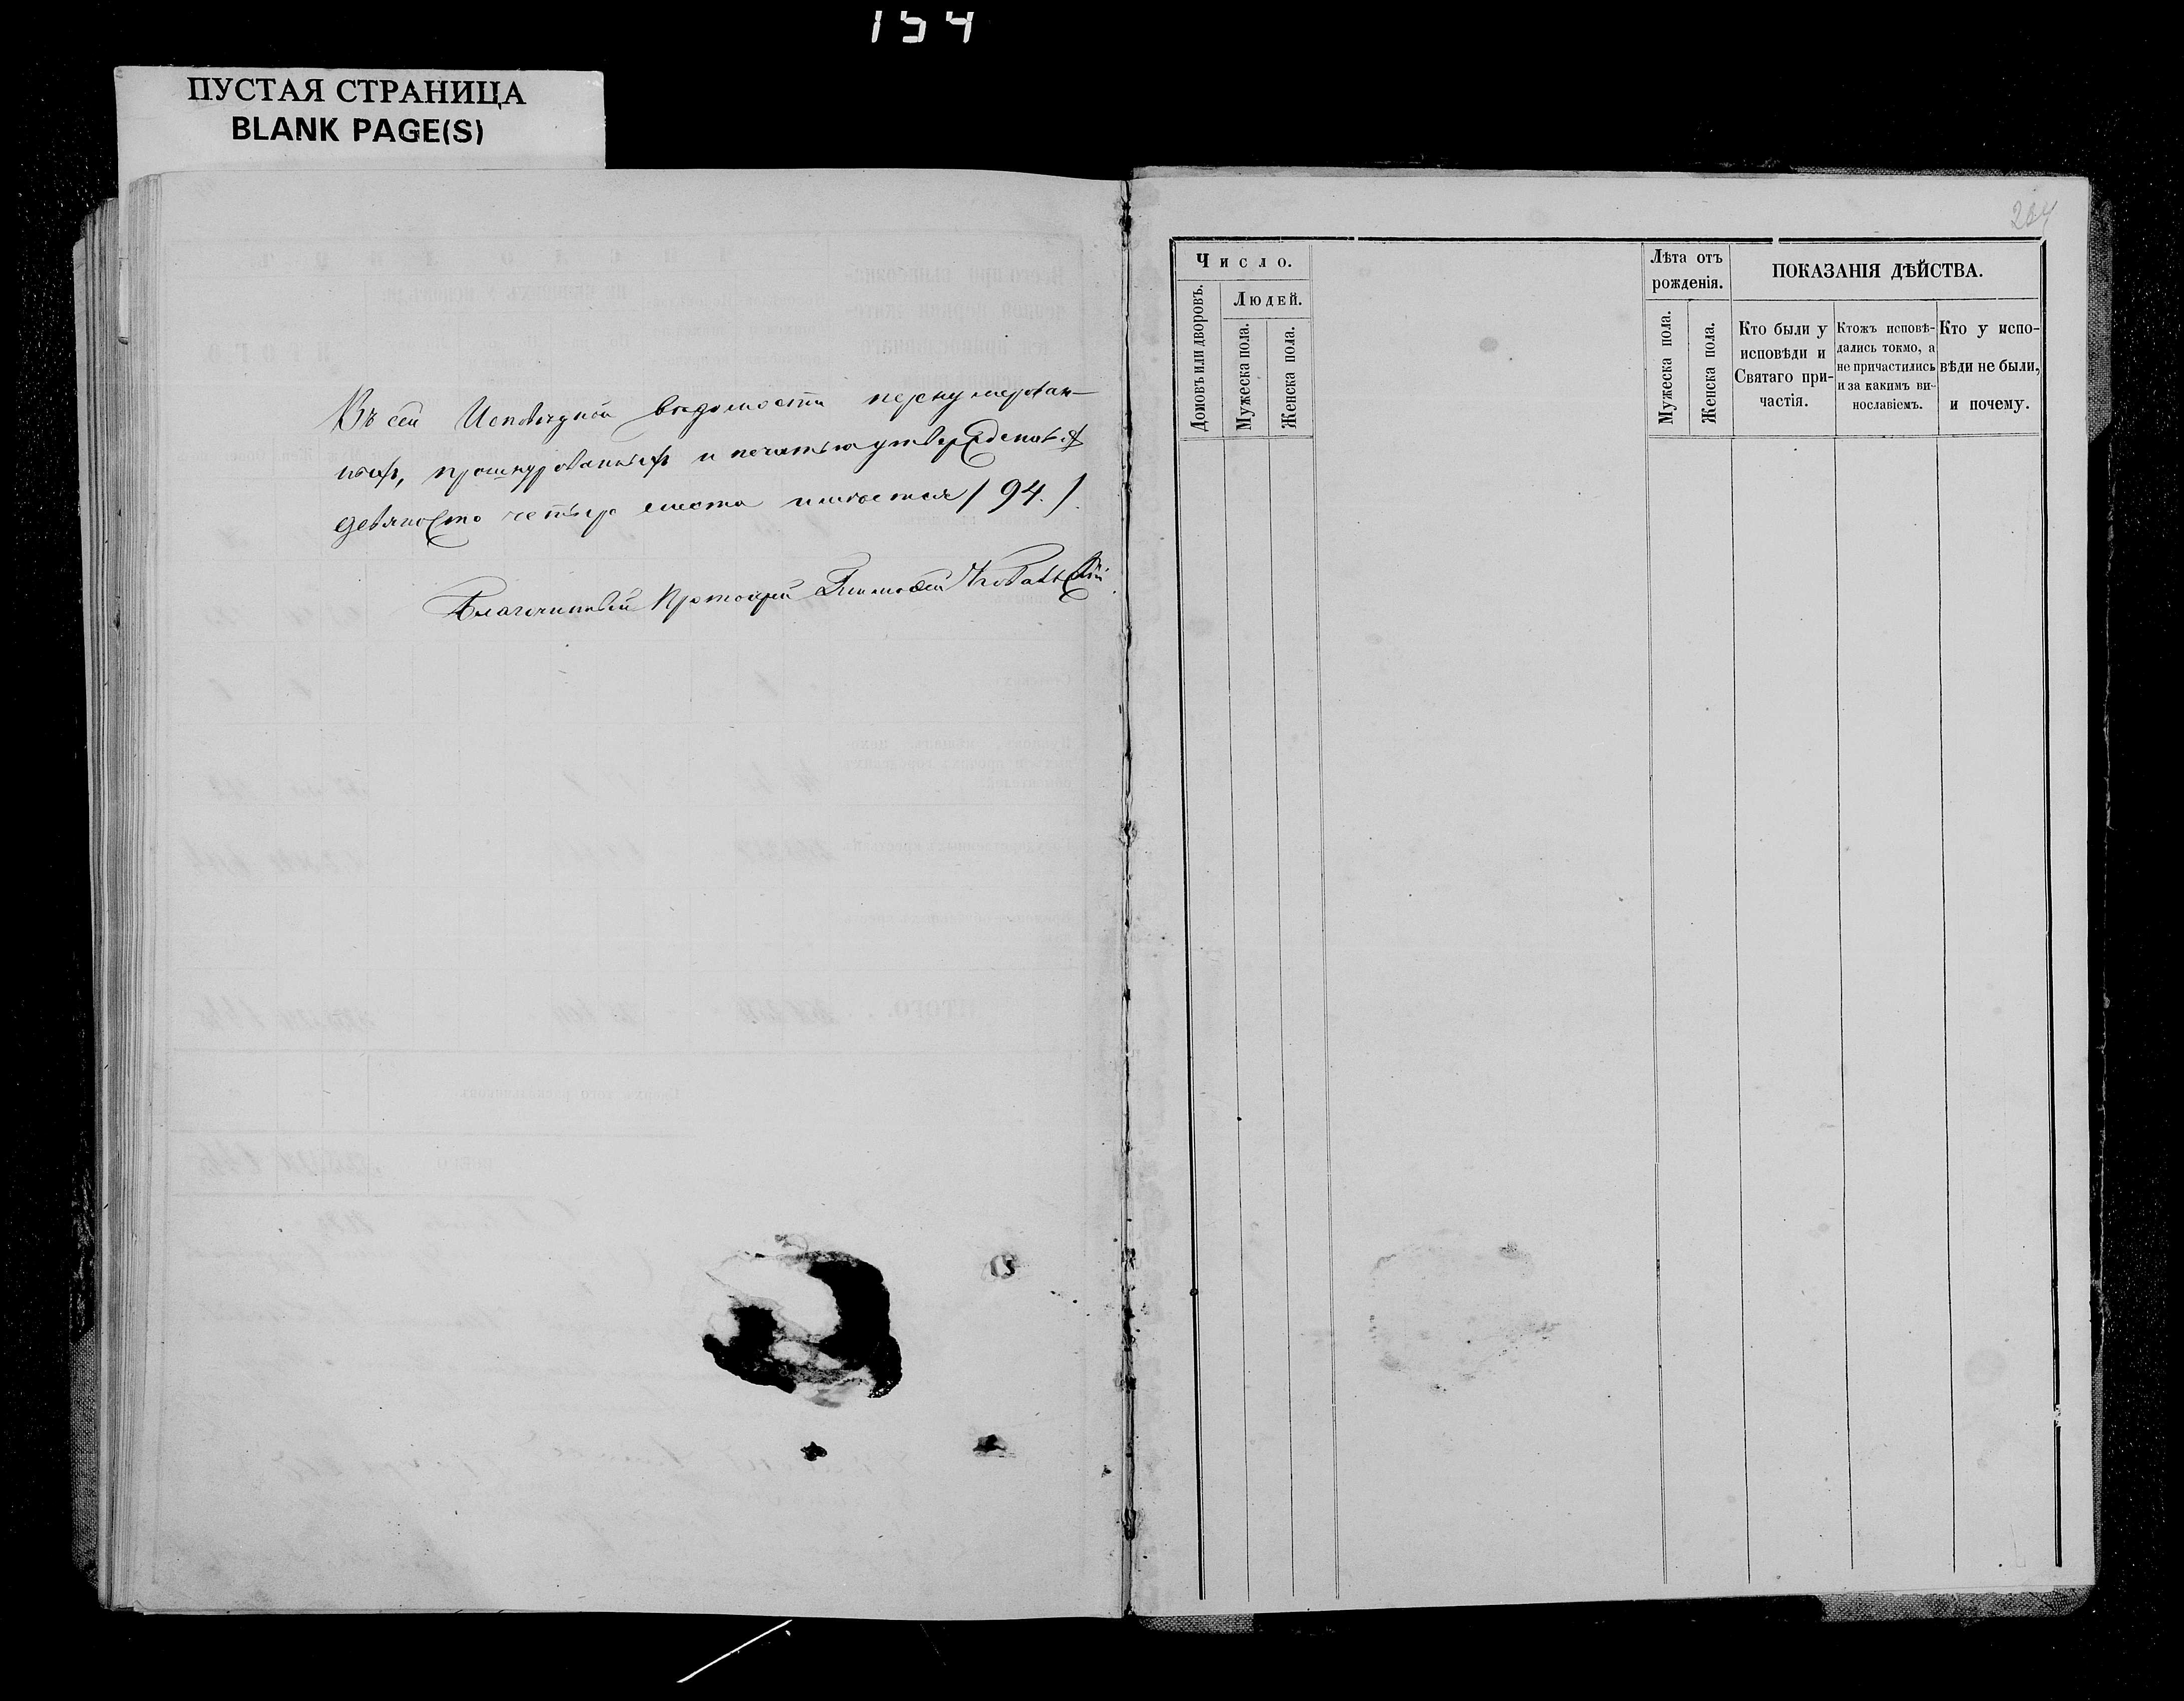 154
ПУСТАЯ СТРАНИЦА
BLANK PAGE(S)
Въ сей Исповѣдной вѣдомости перенумерован-
ныхъ, прошнурованныхъ и печатью утвержденныхъ
девяносто четыре листа имѣется / 94. /.
Благочинный Протоіерей
204
Число.
Домовъ или дворовъ.
Людей.
Мужеска пола.
Женска пола.
Лѣта отъ
рожденія.
Мужеска пола.
Женска пола.
ПОКАЗАНІЯ ДѢЙСТВА.
Кто были у
исповѣди и
Святаго при-
частія.
Ктожъ исповѣ-
дались токмо, а
не причастились
и за какимъ ви-
нославіемъ.
Кто у испо-
вѣди не были,
и почему.